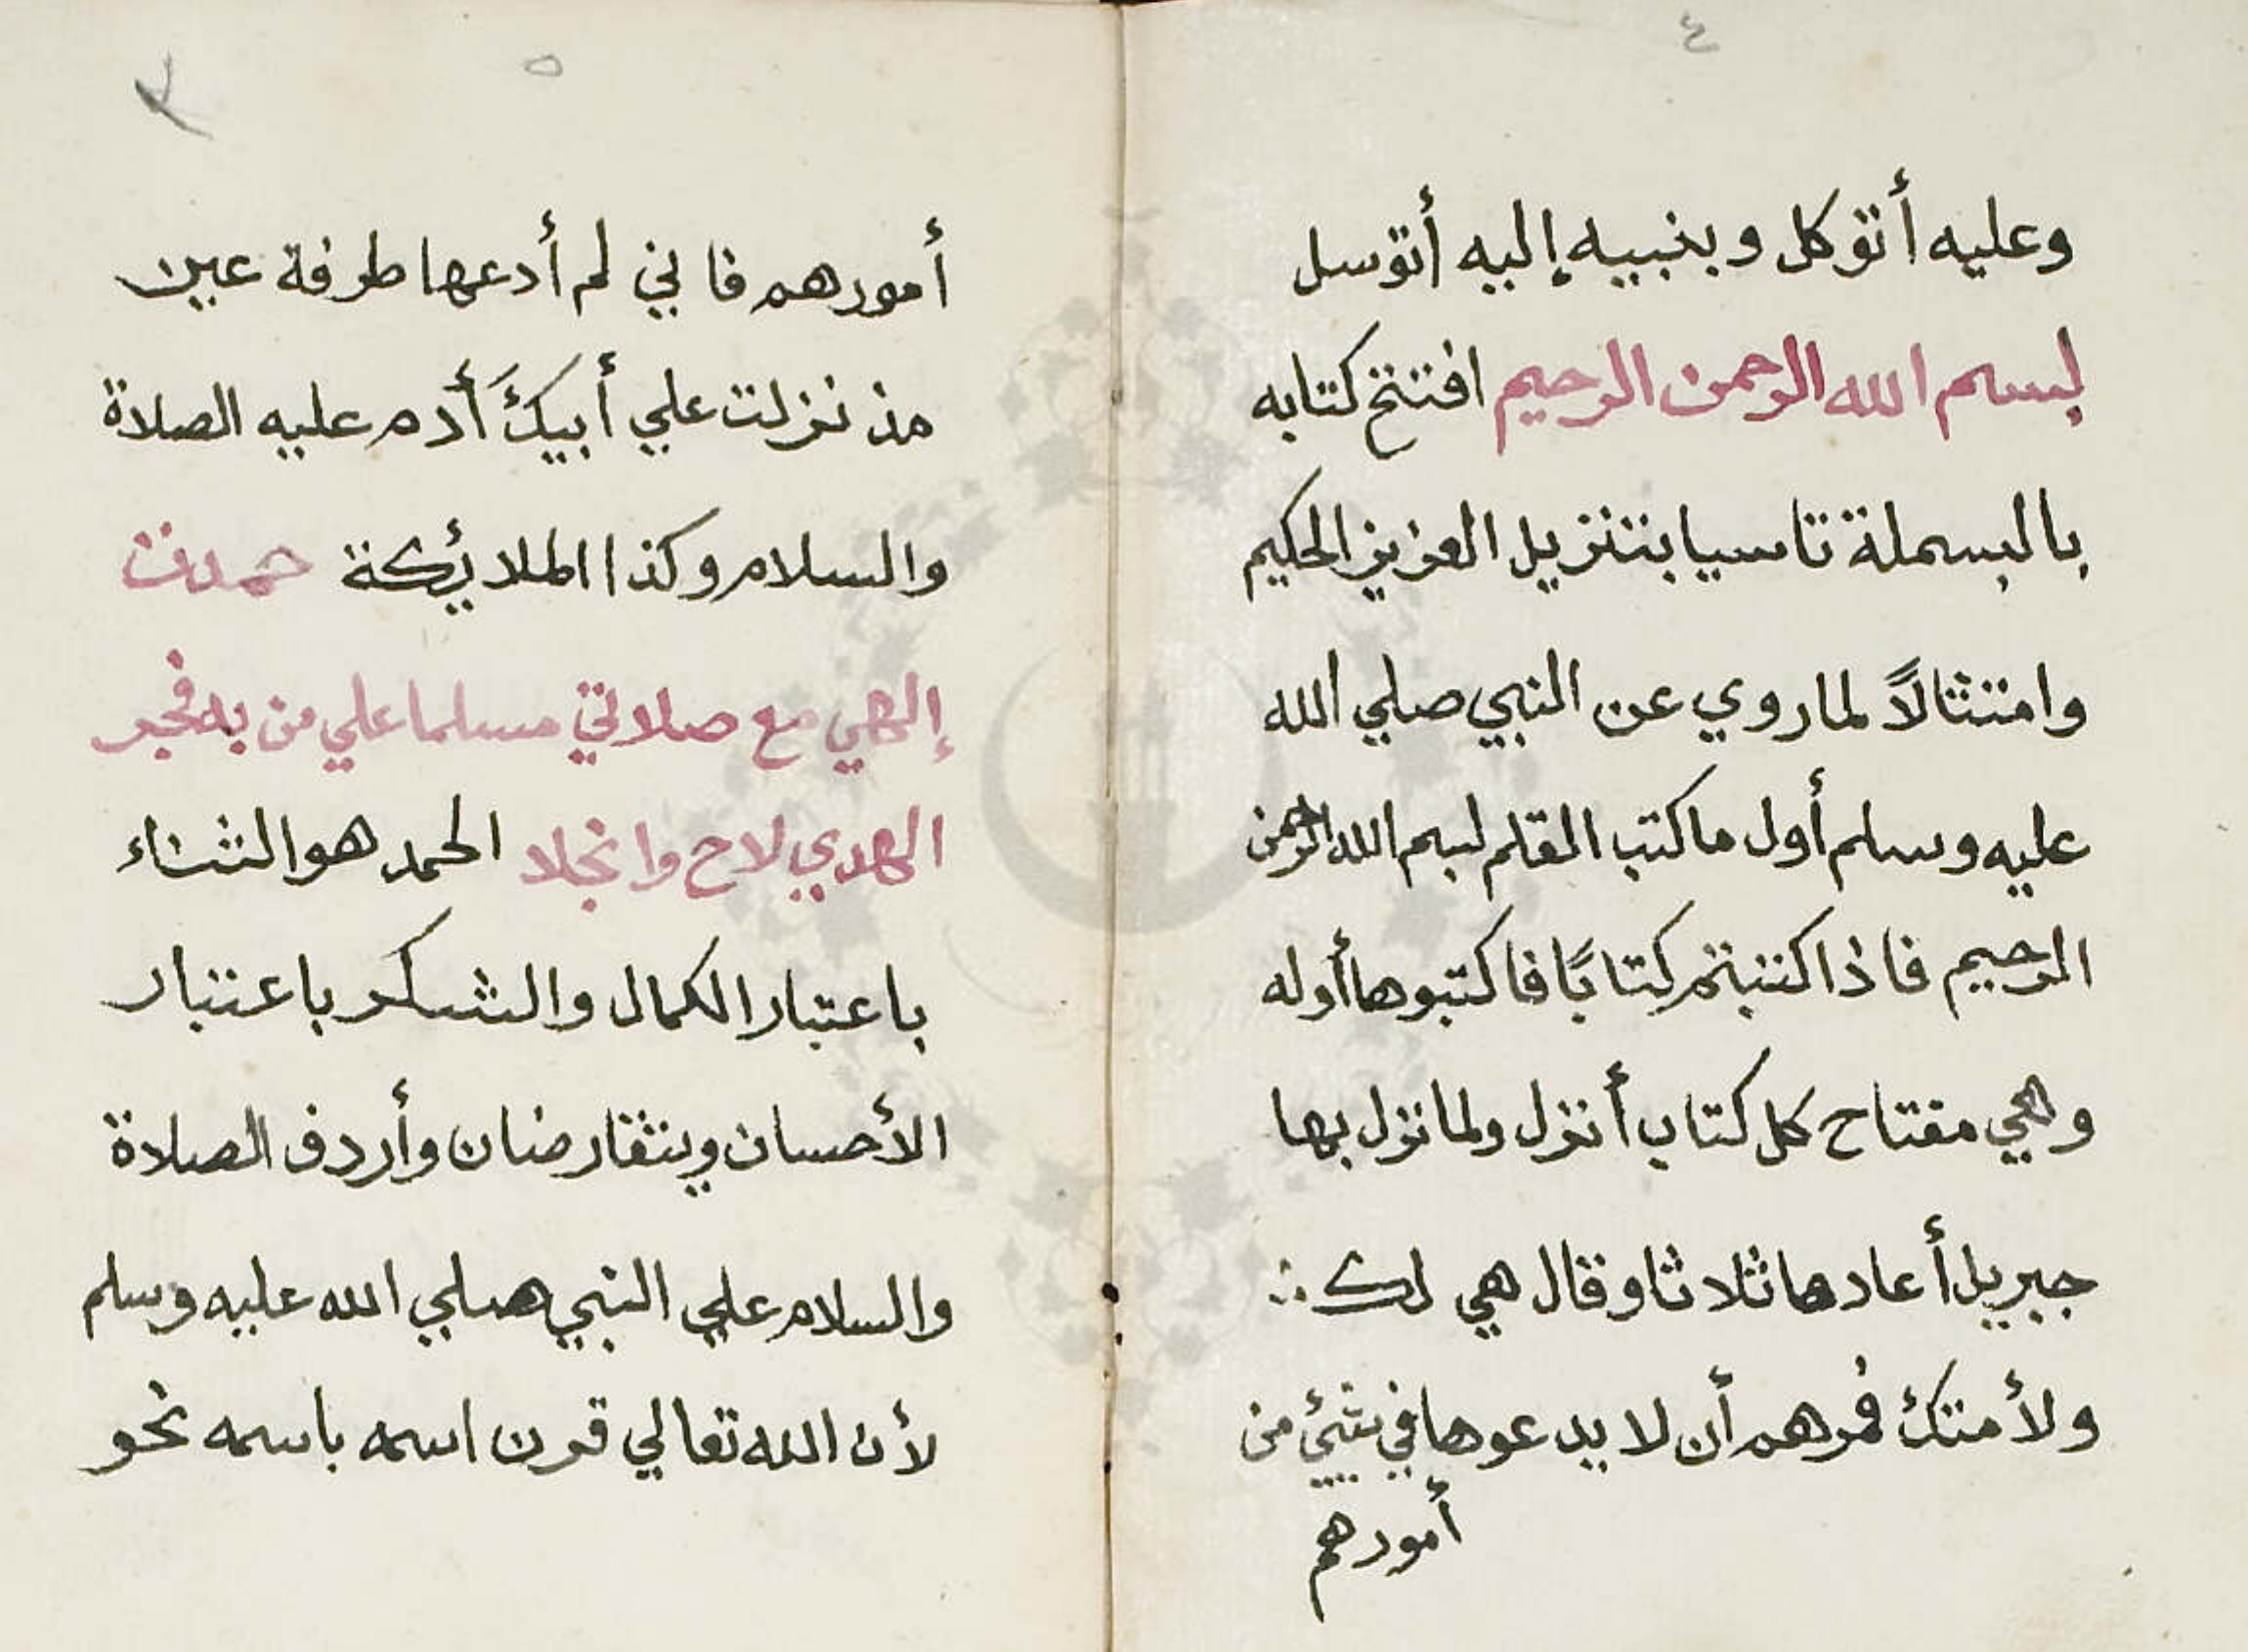 ٤
وعليه أتوكل وبنبيه إليه أتوسل
بسم الله الرحمن الرحيم افتتح كتابه
بالبسملة تاسيا بتنزيل العزيز الحكيم
وامتثالاً لما روي عن النبي صلي الله
عليه وسلم أول ما كتب القلم بسم الله الرحمن
الرحيم فاذا كتبتم كتابًا فاكتبوها أوله
وهي مفتاح كل كتاب أنزل ولما نزل بها
جبريل أعادها ثلاثا وقال هي لك
ولأمتك فمُرهم أن لا يدعوها في شيئ من
أمورهم
٥
أمورهم فاني لم أدعها طرفة عين
مذ نزلت علي أبيكَ أدم عليه الصلاة
والسلام وكذا الملائكة حمدت
إلهي مع صلاتي مسلما علي من به فجر
الهدي لاح وانجلا الحمد هو الثناء
باعتبار الكمال والشكر باعتبار
الأحسان ويتقارضان وأردف الصلاة
والسلام علي النبي صلي الله عليه وسلم
لأن الله تعالي قرن اسمه باسمه نحو